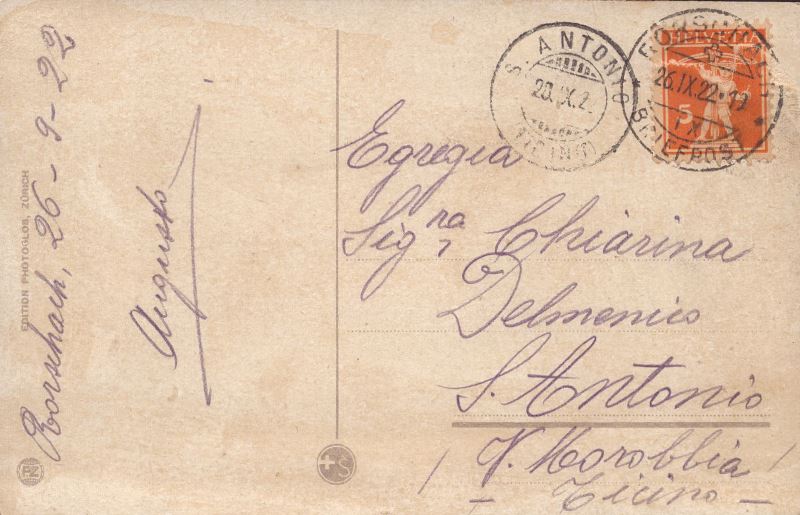 Rorschach, 26-9-22
Augusto
EDITION PHOTOGLOB, ZÜRICH
S. ANTONIO
(TICINO)
RORSCHACH
26.IX.22
BRIEFPOST
HELVETIA
5
Egregia
Sigra Chiarina
Delmenico
S. Antonio
V. Morobbia
Ticino